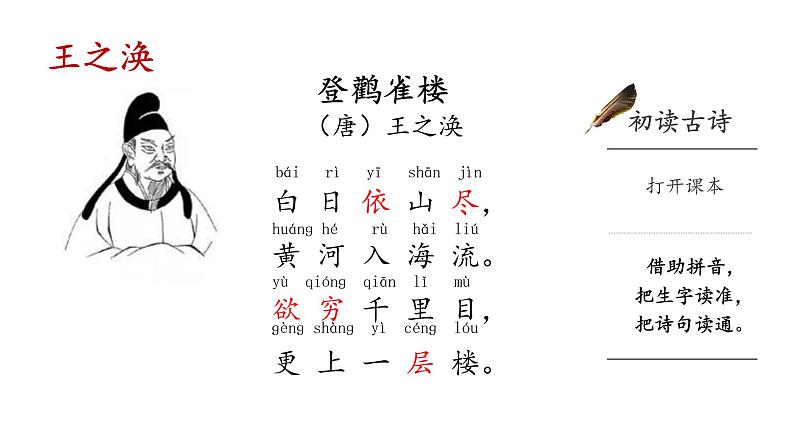 王之涣
登鹳雀楼
（唐）王之涣
bái rì yī shān jìn
白日依山尽，
huáng hé rù hǎi liú
黄河入海流。
yù qióng qiān lǐ mù
欲穷千里目，
gèng shàng yì céng lóu
更上一层楼。
初读古诗
打开课本
借助拼音，
把生字读准，
把诗句读通。